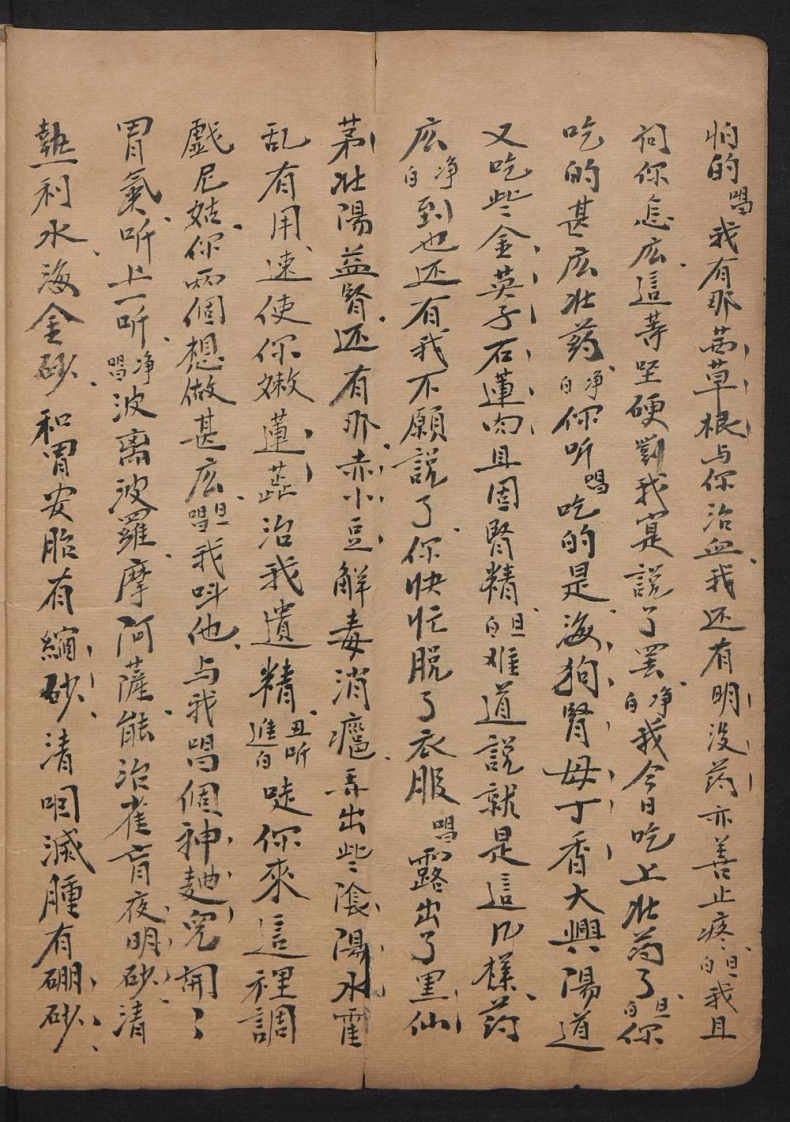 怕的唱我有那茜草根与你治血我还有明没药亦善止疼旦白我且
问你怎広這等坚硬對我寔說了罢净白我今日吃上壯药了旦白你
吃的甚広壯药净白你听唱吃的是海狗腎母丁香大興陽道
又吃些金英子石蓮肉且固腎精旦白难道說就是這几樣药
広净白到也还有我不願說了你快忙脱了衣服唱露出了黑仙
茅壯陽益腎还有那赤小豆解毒消癰弄出些陰陽水霍
乱有用速使你嫩蓮蕋治我遺精丑听進白唗你來這裡調
戯尼姑你两個想做甚広旦唱我呌他与我唱個神麯兒開〻
胃氣听上一听净唱波离波羅摩阿薩能治雀盲夜明砂清
熱利水海金砂和胃安胎有縮砂清咽滅腫有硼砂